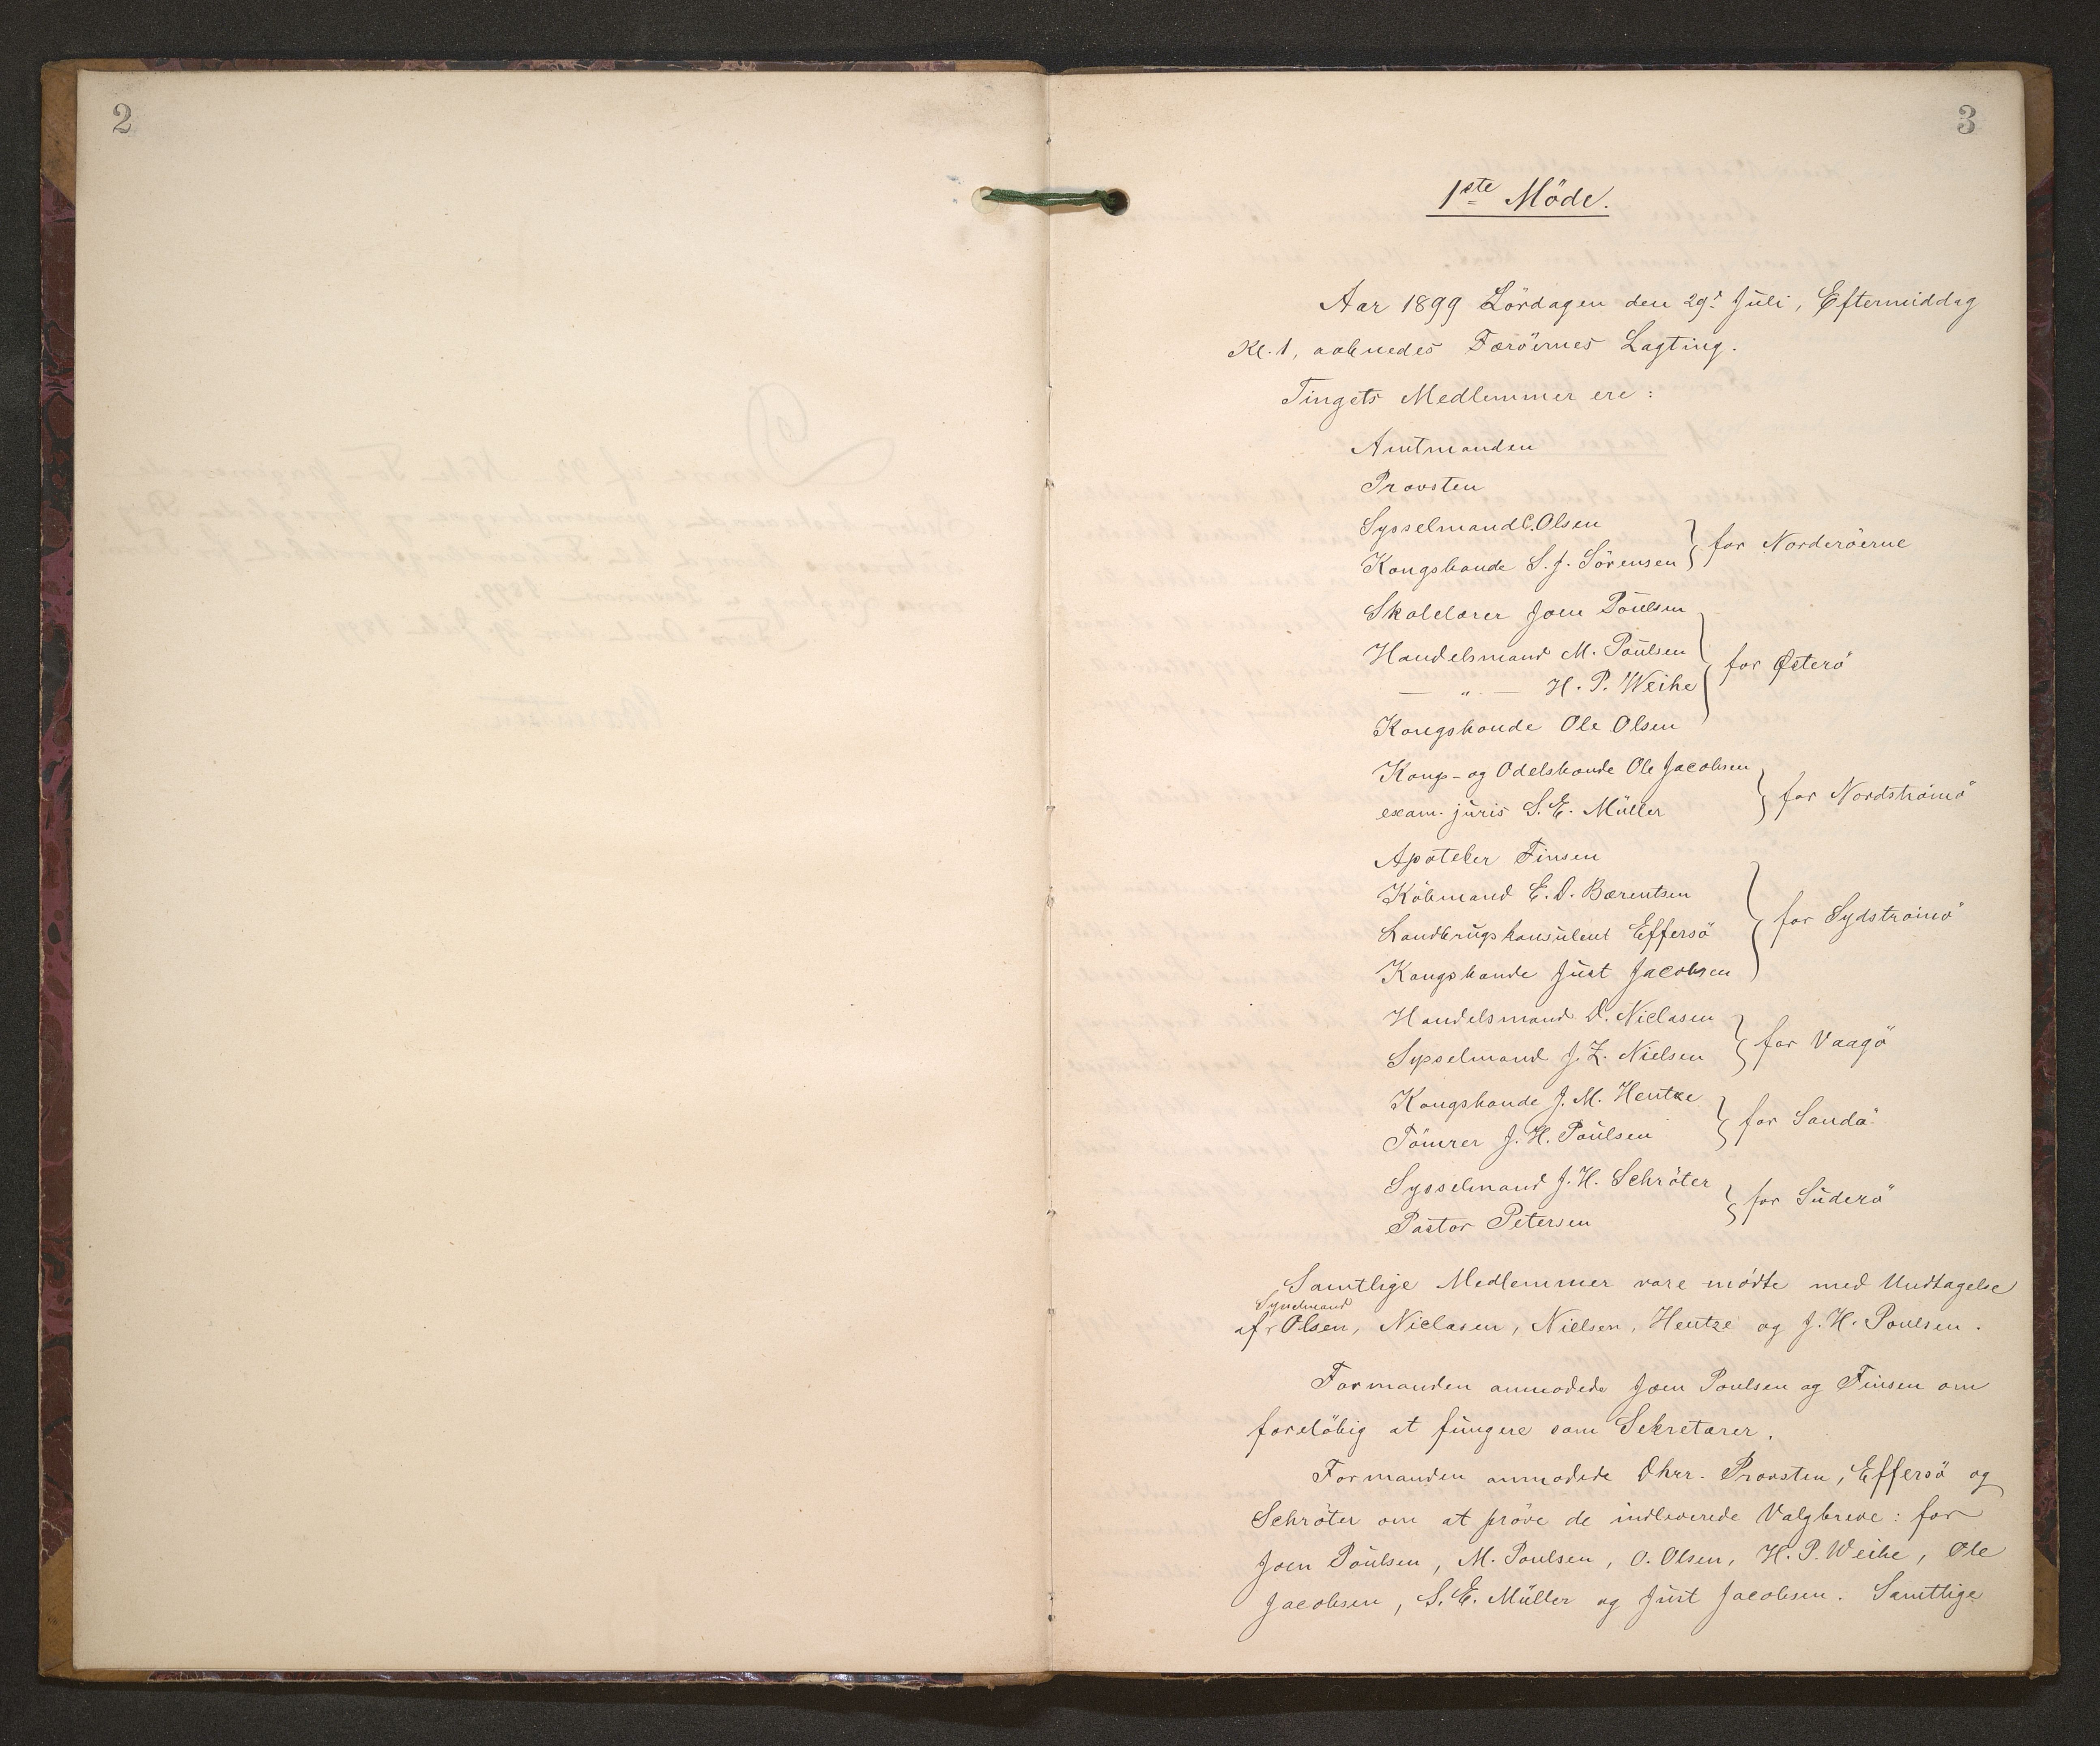 2
3
1ste Möde.
Aar 1899 Lördagen den 29d Juli, Eftermiddag
Kl. 1, aabnedes Færöernes Lagting.
Tingets Medlemmer ere:
Amtmanden
Provsten
Sysselmand C. Olsen
Kongsbonde S. J. Sörensen } for Norderöerne
Skolelærer Joen Poulsen
Handelsmand M. Poulsen
— " — H. P. Weihe } for Østerö
Kongsbonde Ole Olsen
Kongs- og Odelsbonde Ole Jacobsen
exam. juris S. E. Müller } for Nordströmö
Apoteker Finsen
Köbmand E. D. Bærentsen
Landbrugskonsulent Effersö } for Sydströmö
Kongsbonde Just Jacobsen
Handelsmand D. Niclasen
Sysselmand J. Z. Nielsen } for Vaagö
Kongsbonde J. M. Hentze
Tömrer J. H. Poulsen } for Sandö
Sysselmand J. H. Schröter
Pastor Petersen } for Suderö
Samtlige Medlemmer vare mødte med Undtagelse
Sysselmand
af Olsen, Niclasen, Nielsen, Hentze og J. H. Poulsen.
Formanden anmodede Joen Poulsen og Finsen om
foreløbig at fungere som Sekretærer.
Formanden anmodede Dhrr. Provsten, Effersö og
Schröter om at pröve de indleverede Valgbreve: for
Joen Poulsen, M. Poulsen, O. Olsen, H. P. Weihe, Ole
Jacobsen, S. E. Müller og Just Jacobsen. Samtlige